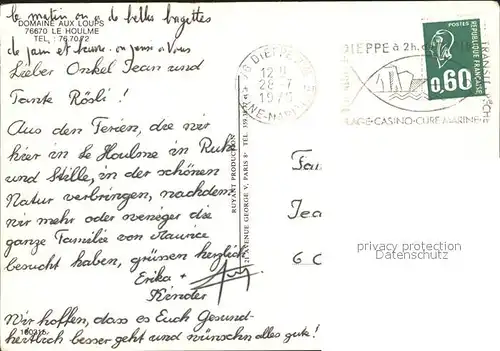 le matin on a de belles bagettes
DOMAINE AUX LOUPS
76670 LE HOULME
TEL. : 76.70.72
de pain et beurre. on pense à vous
Lieber Onkel Jean und
Tante Rösli !
Aus den Ferien, die wir
hier in Le Houlme in Ruhe
und Stille, in der schönen
Natur verbringen, nachdem
wir mehr oder weniger die
ganze Familie von Maurice
besucht haben, grüssen herzlich
Erika +
Kinder
Wir hoffen, dass es Euch Gesund-
heitlich besser geht und wünschn alles gute !
180315
RUYANT PRODUCTION
AVENUE GEORGE V, PARIS 8e
76 DIEPPE
12 H
28-7
1976
SEINE-MARITIME
DIEPPE à 2h.
PLAGE-CASINO-CURE MARINE
POSTES
REPUBLIQUE FRANÇAISE
0,60
Fam
Jea
6 C
copyright protected
Datenschutz